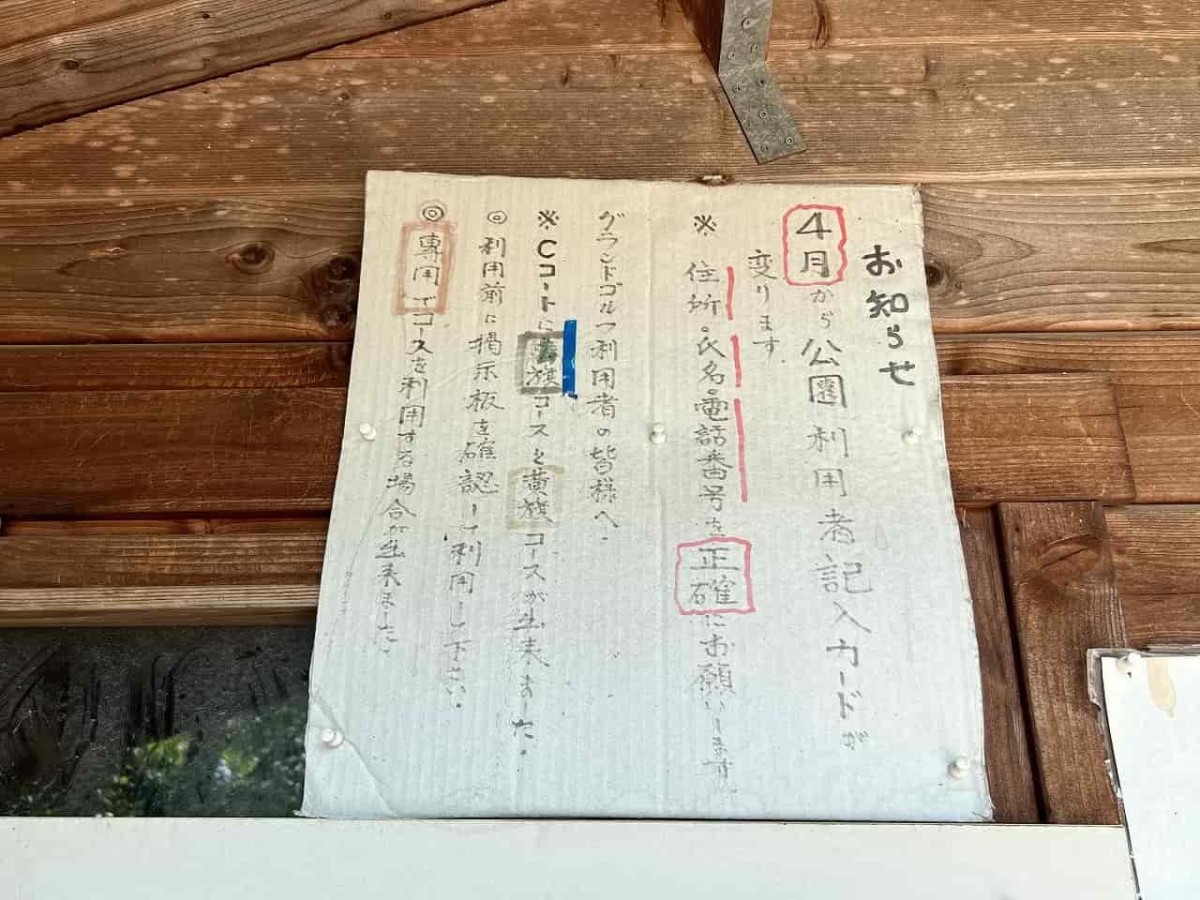 お知らせ
4月から公園利用者記入カードが
変ります.
※住所。氏名。電話番号を正確にお願いします
グランドゴルフ利用者の皆様へ.
※Cコートに旗コースと黄旗コースが出来ました.
◎利用前に掲示板を確認して利用し下さい.
◎専用でコースを利用する場合が出来ました